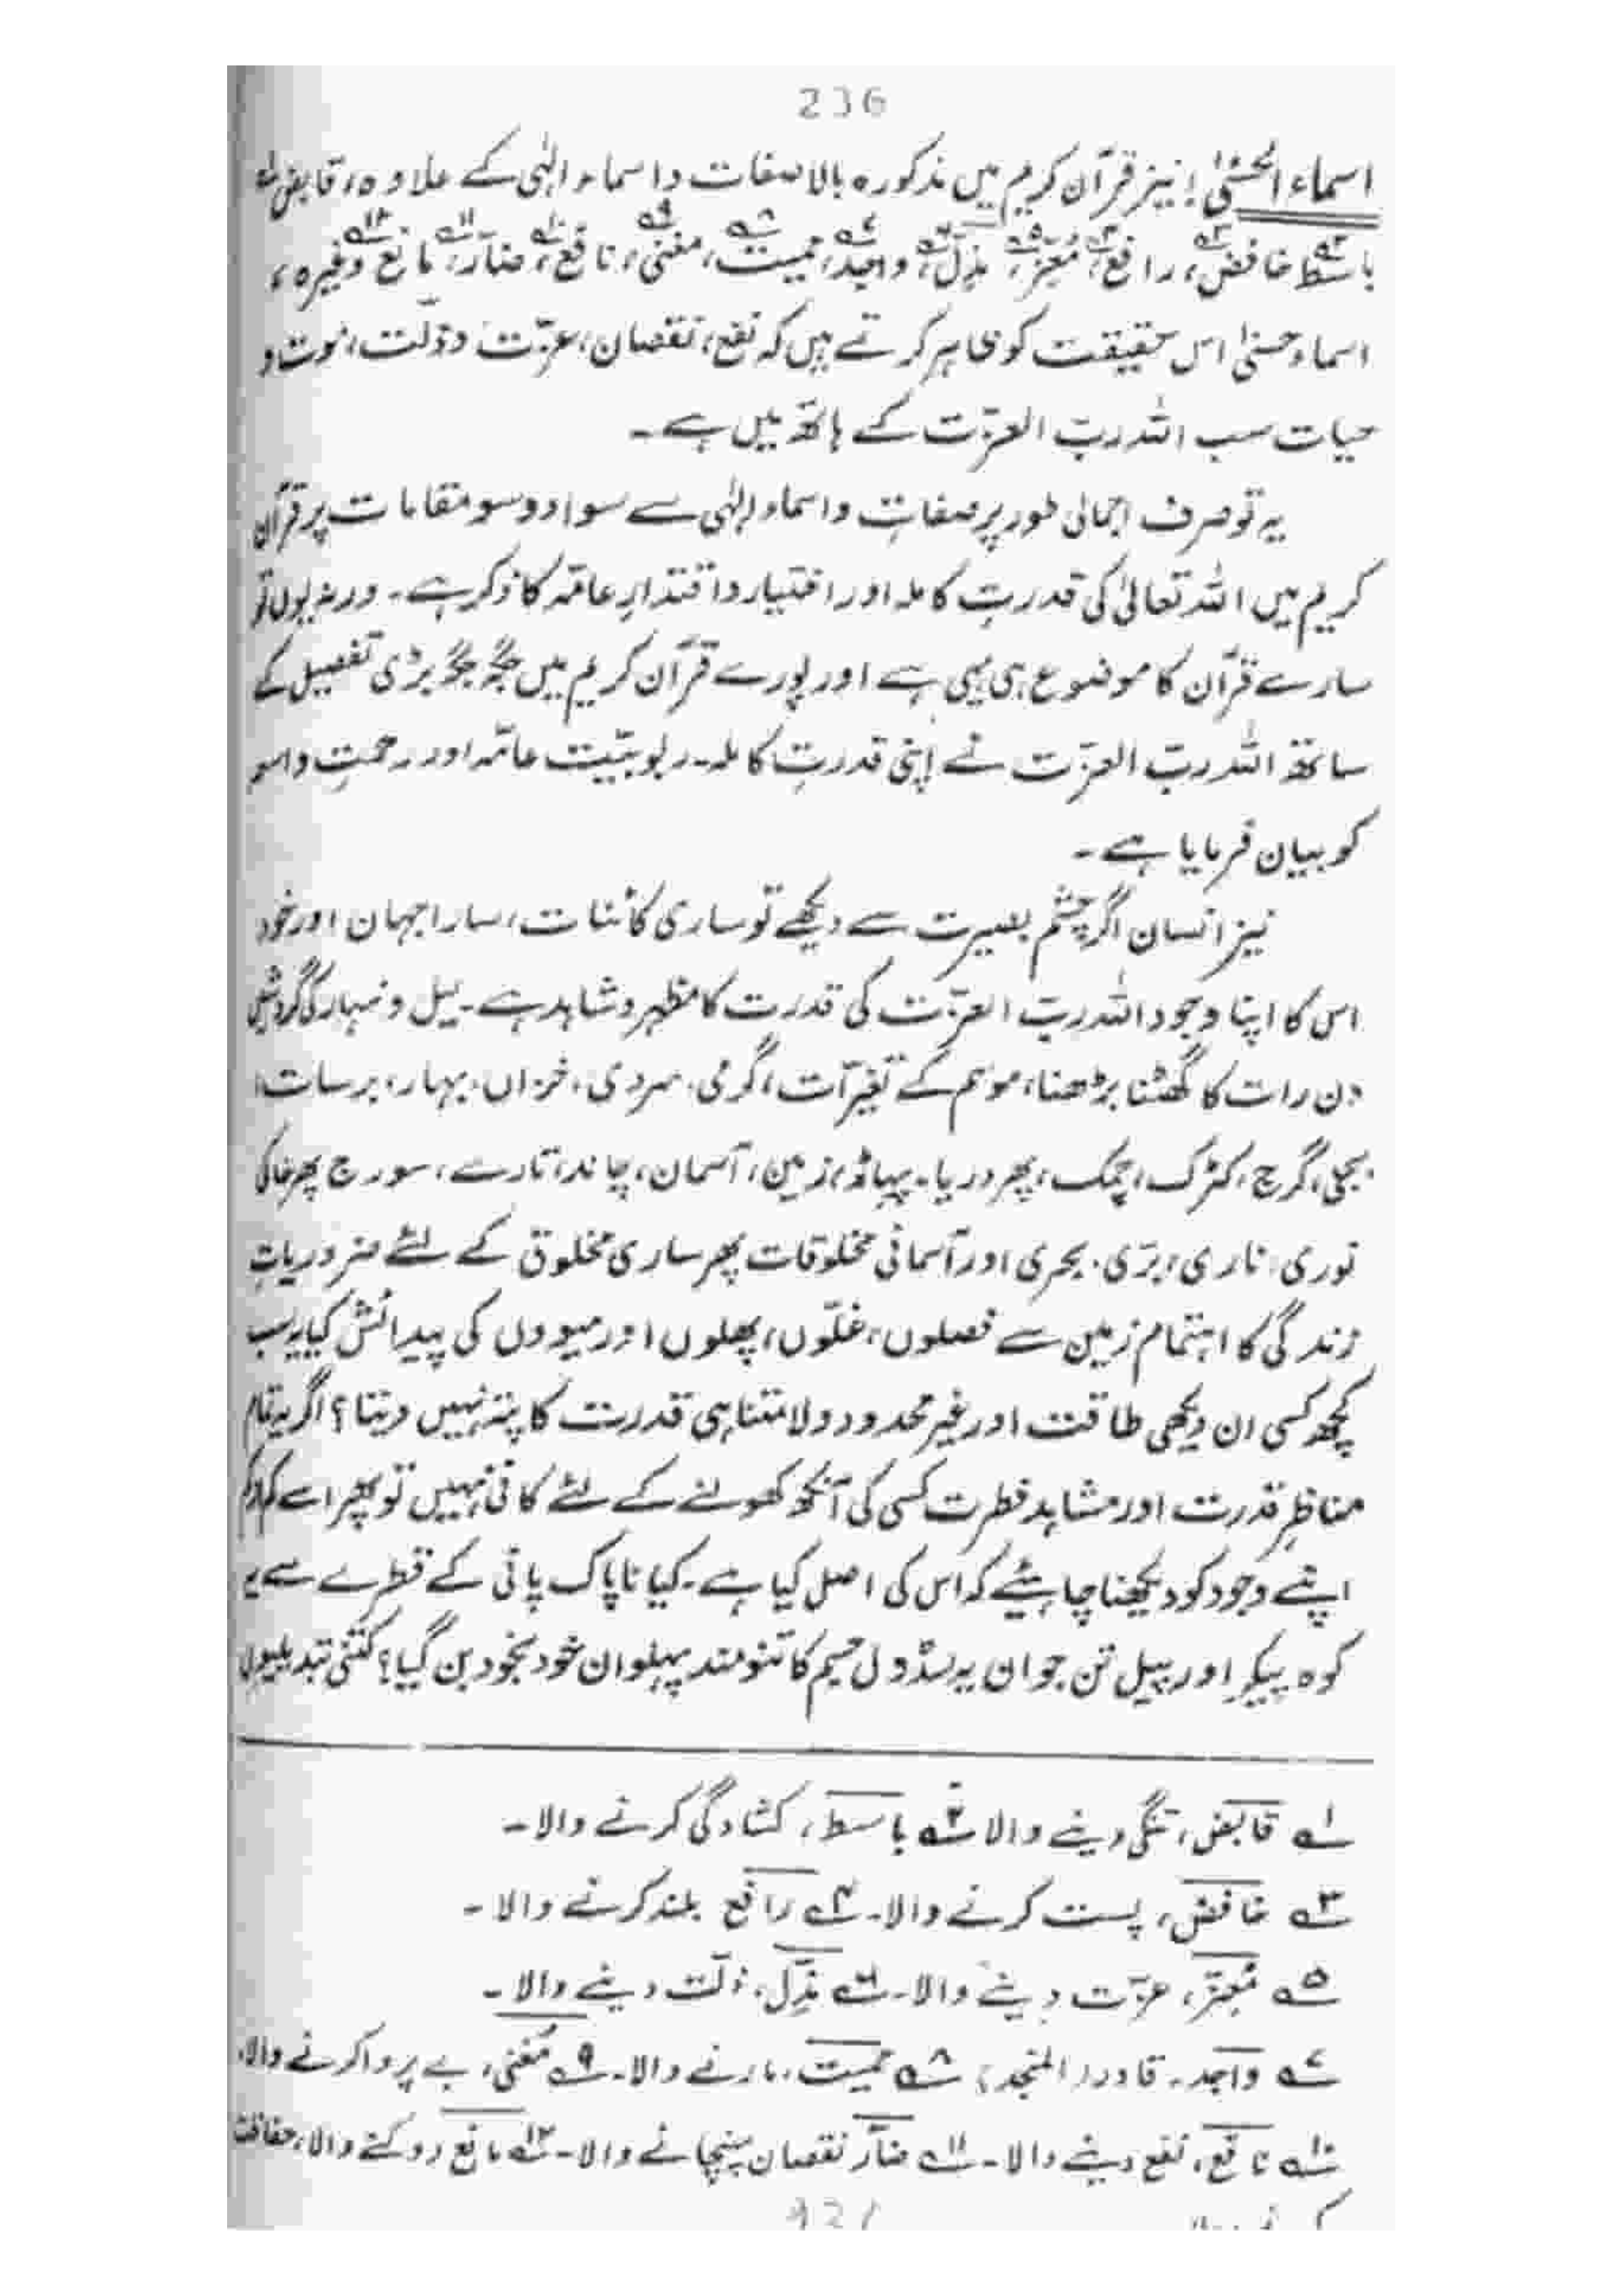 236
اسماء الحسنٰی: نیز قرآن کریم میں مذکورہ بالا صفات و اسماء الٰہی کے علاوہ، قابض؎۱
باسط؎۲ خافض؎۳، رافع؎۴، مُعِزّ؎۵، مذِلّ؎۶، واجد؎۷، ممیت؎۸، مغنی؎۹، نافع؎۱۰، ضارّ؎۱۱، مانع؎۱۲ وغیرہ،
اسماء حسنیٰ اس حقیقت کو ظاہر کرتے ہیں کہ نفع، نقصان، عزّت و ذلّت، موت و
حیات سب اللہ ربّ العزّت کے ہاتھ میں ہے۔
یہ تو صرف اجمالی طور پر صفاتِ و اسماء الٰہی سے سوا دو سو مقامات پر قرآن
کریم میں اللہ تعالیٰ کی قدرتِ کاملہ اور اختیار و اقتدارِ عامّہ کا ذکر ہے۔ ورنہ یوں تو
سارے قرآن کا موضوع ہی یہی ہے اور پورے قرآن کریم میں جگہ جگہ بڑی تفصیل کے
ساتھ اللہ ربّ العزّت نے اپنی قدرتِ کاملہ۔ ربوبیّت عامّہ اور رحمتِ واسعہ
کو بیان فرمایا ہے۔
نیز انسان اگر چشم بصیرت سے دیکھے تو ساری کائنات، سارا جہان اور خود
اس کا اپنا وجود اللہ ربّ العزّت کی قدرت کا مظہر و شاہد ہے۔ لیل و نہار کی گردش
دن رات کا گھٹنا بڑھنا، موسم کے تغیرّات، گرمی۔ سردی، خزاں۔ بہار، برسات،
بجلی، گرج، کڑک، چمک، پھر دریا۔ پہاڑ، زمین، آسمان، چاند، تارے، سورج پھر خاکی
نوری، ناری، برّی۔ بحری اور آسمانی مخلوقات پھر ساری مخلوق کے لئے ضروریاتِ
زندگی کا اہتمام زمین سے فصلوں، غلّوں، پھلوں اور میووں کی پیدائش کیا یہ سب
کچھ کسی ان دیکھی طاقت اور غیر محدود و لامتناہی قدرت کا پتہ نہیں دیتا؟ اگر یہ تمام
مناظرِ قدرت اور مشاہد فطرت کسی کی آنکھ کھولنے کے لئے کافی نہیں تو پھر اسے کم از کم
اپنے وجود کو دیکھنا چاہئیے کہ اس کی اصل کیا ہے۔ کیا ناپاک پانی کے قطرے سے یہ
کوہ پیکر اور پیل تن جوان یہ سڈول جسم کا تنومند پہلوان خود بخود بن گیا؟ کتنی تبدیلیوں
؎۱ قابض، تنگی دینے والا ؎۲ باسط، کشادگی کرنے والا۔
؎۳ خافض، پست کرنے والا۔ ؎۴ رافع بلند کرنے والا۔
؎۵ مُعِزّ، عزّت دینے والا۔ ؎۶ مذِلّ، ذلّت دینے والا۔
؎۷ واجد۔ قادر (المنجد) ؎۸ ممیت، مارنے والا۔ ؎۹ مُغنی، بے پروا کرنے والا،
؎۱۰ نافع، نفع دینے والا۔ ؎۱۱ ضارّ نقصان پہنچانے والا۔ ؎۱۲ مانع روکنے والا، حفاظت